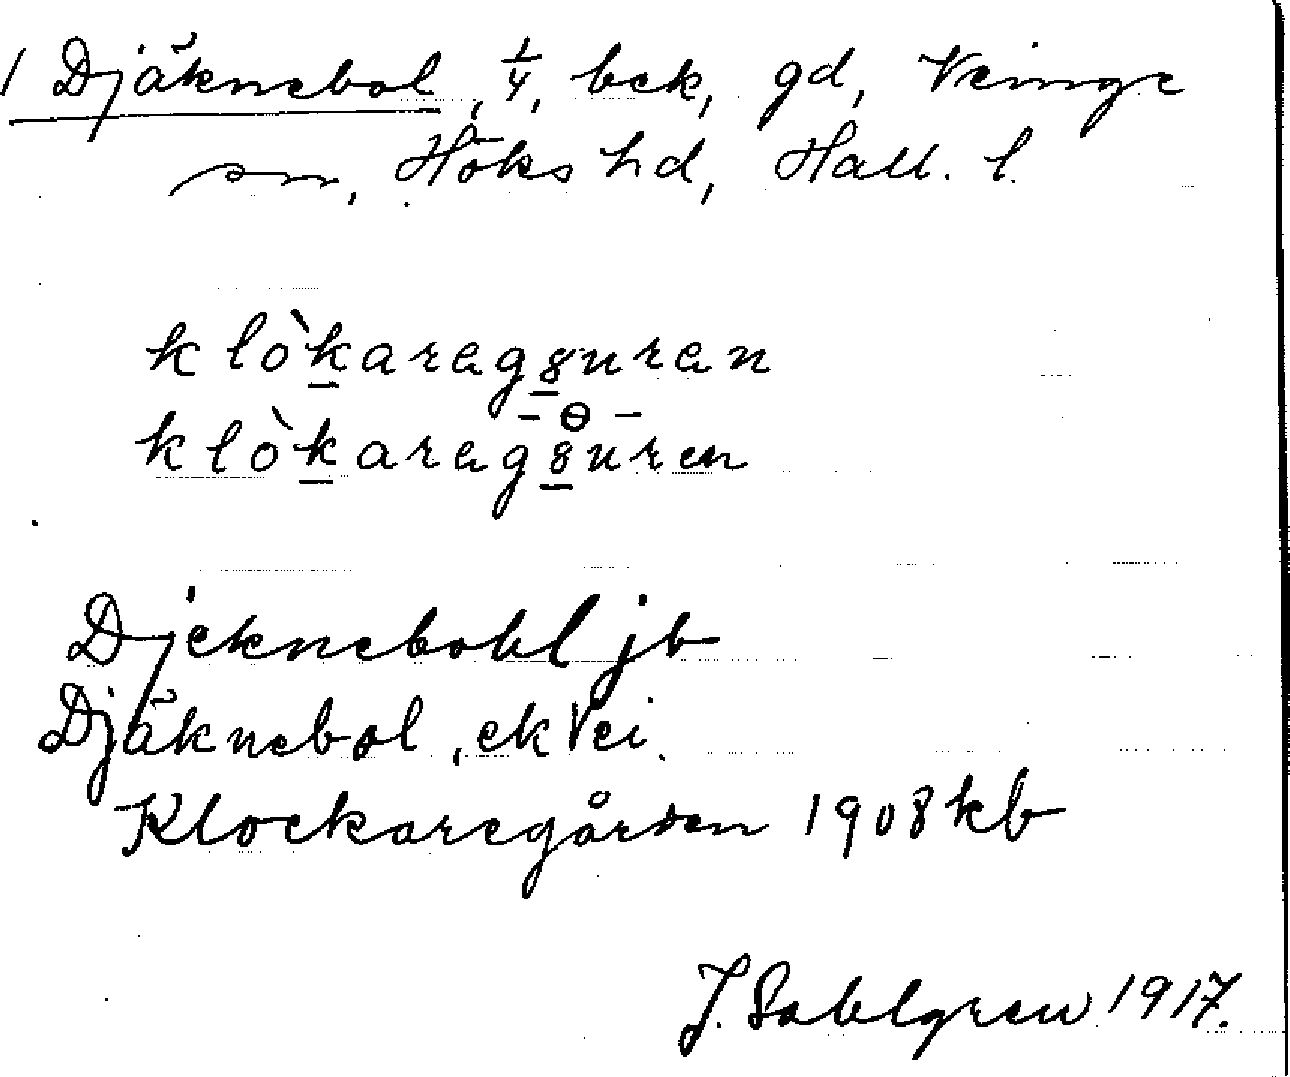 1 Djäknebol, 1/4, bek, gd, Veinge
sn, Höks hd, Hall. l.
klòkaregȣuren
- ɵ -
klòkaregȣuren
Djeknebohl jb
Djäknebol, ek Vei.
Klockaregården 1908 kb
J. Sahlgren 1917.